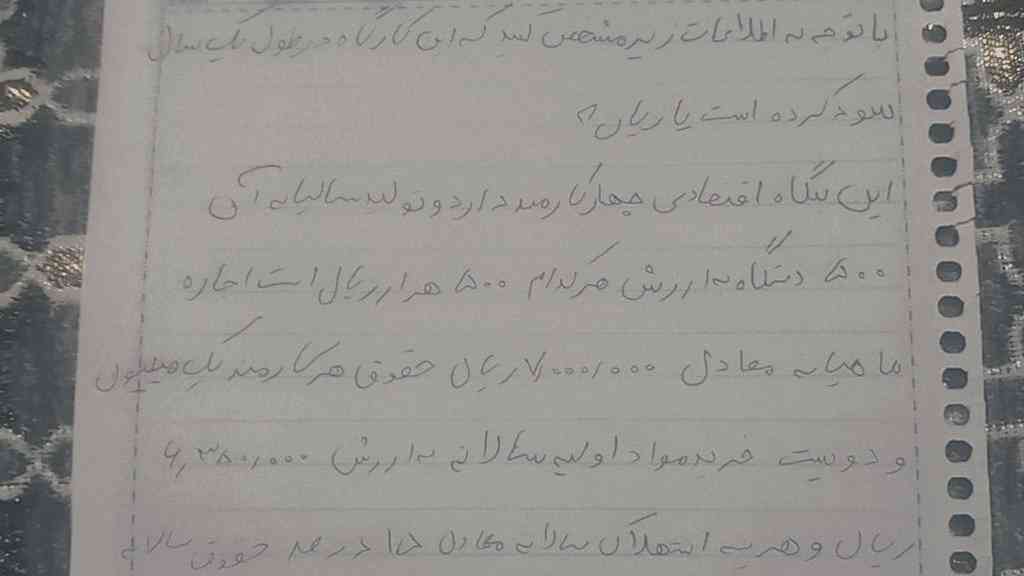 با توجه به اطلاعات زیر مشخص کنید که این کارگاه در طول یک سال
سود کرده است یا زیان؟
این بنگاه اقتصادی چهار کارمند دارد و تولید سالیانه آن
۵۰۰ دستگاه به ارزش هر کدام ۵۰۰ هزار ریال است اجاره
ماهیانه معادل ۷/۰۰۰/۰۰۰ ریال حقوق هر کارمند یک میلیون
و دویست خرید مواد اولیه سالانه به ارزش ۶,۳۵۰,۰۰۰
ریال و هزینه استهلاک سالانه معادل ۱۵ درصد حقوق سالانه